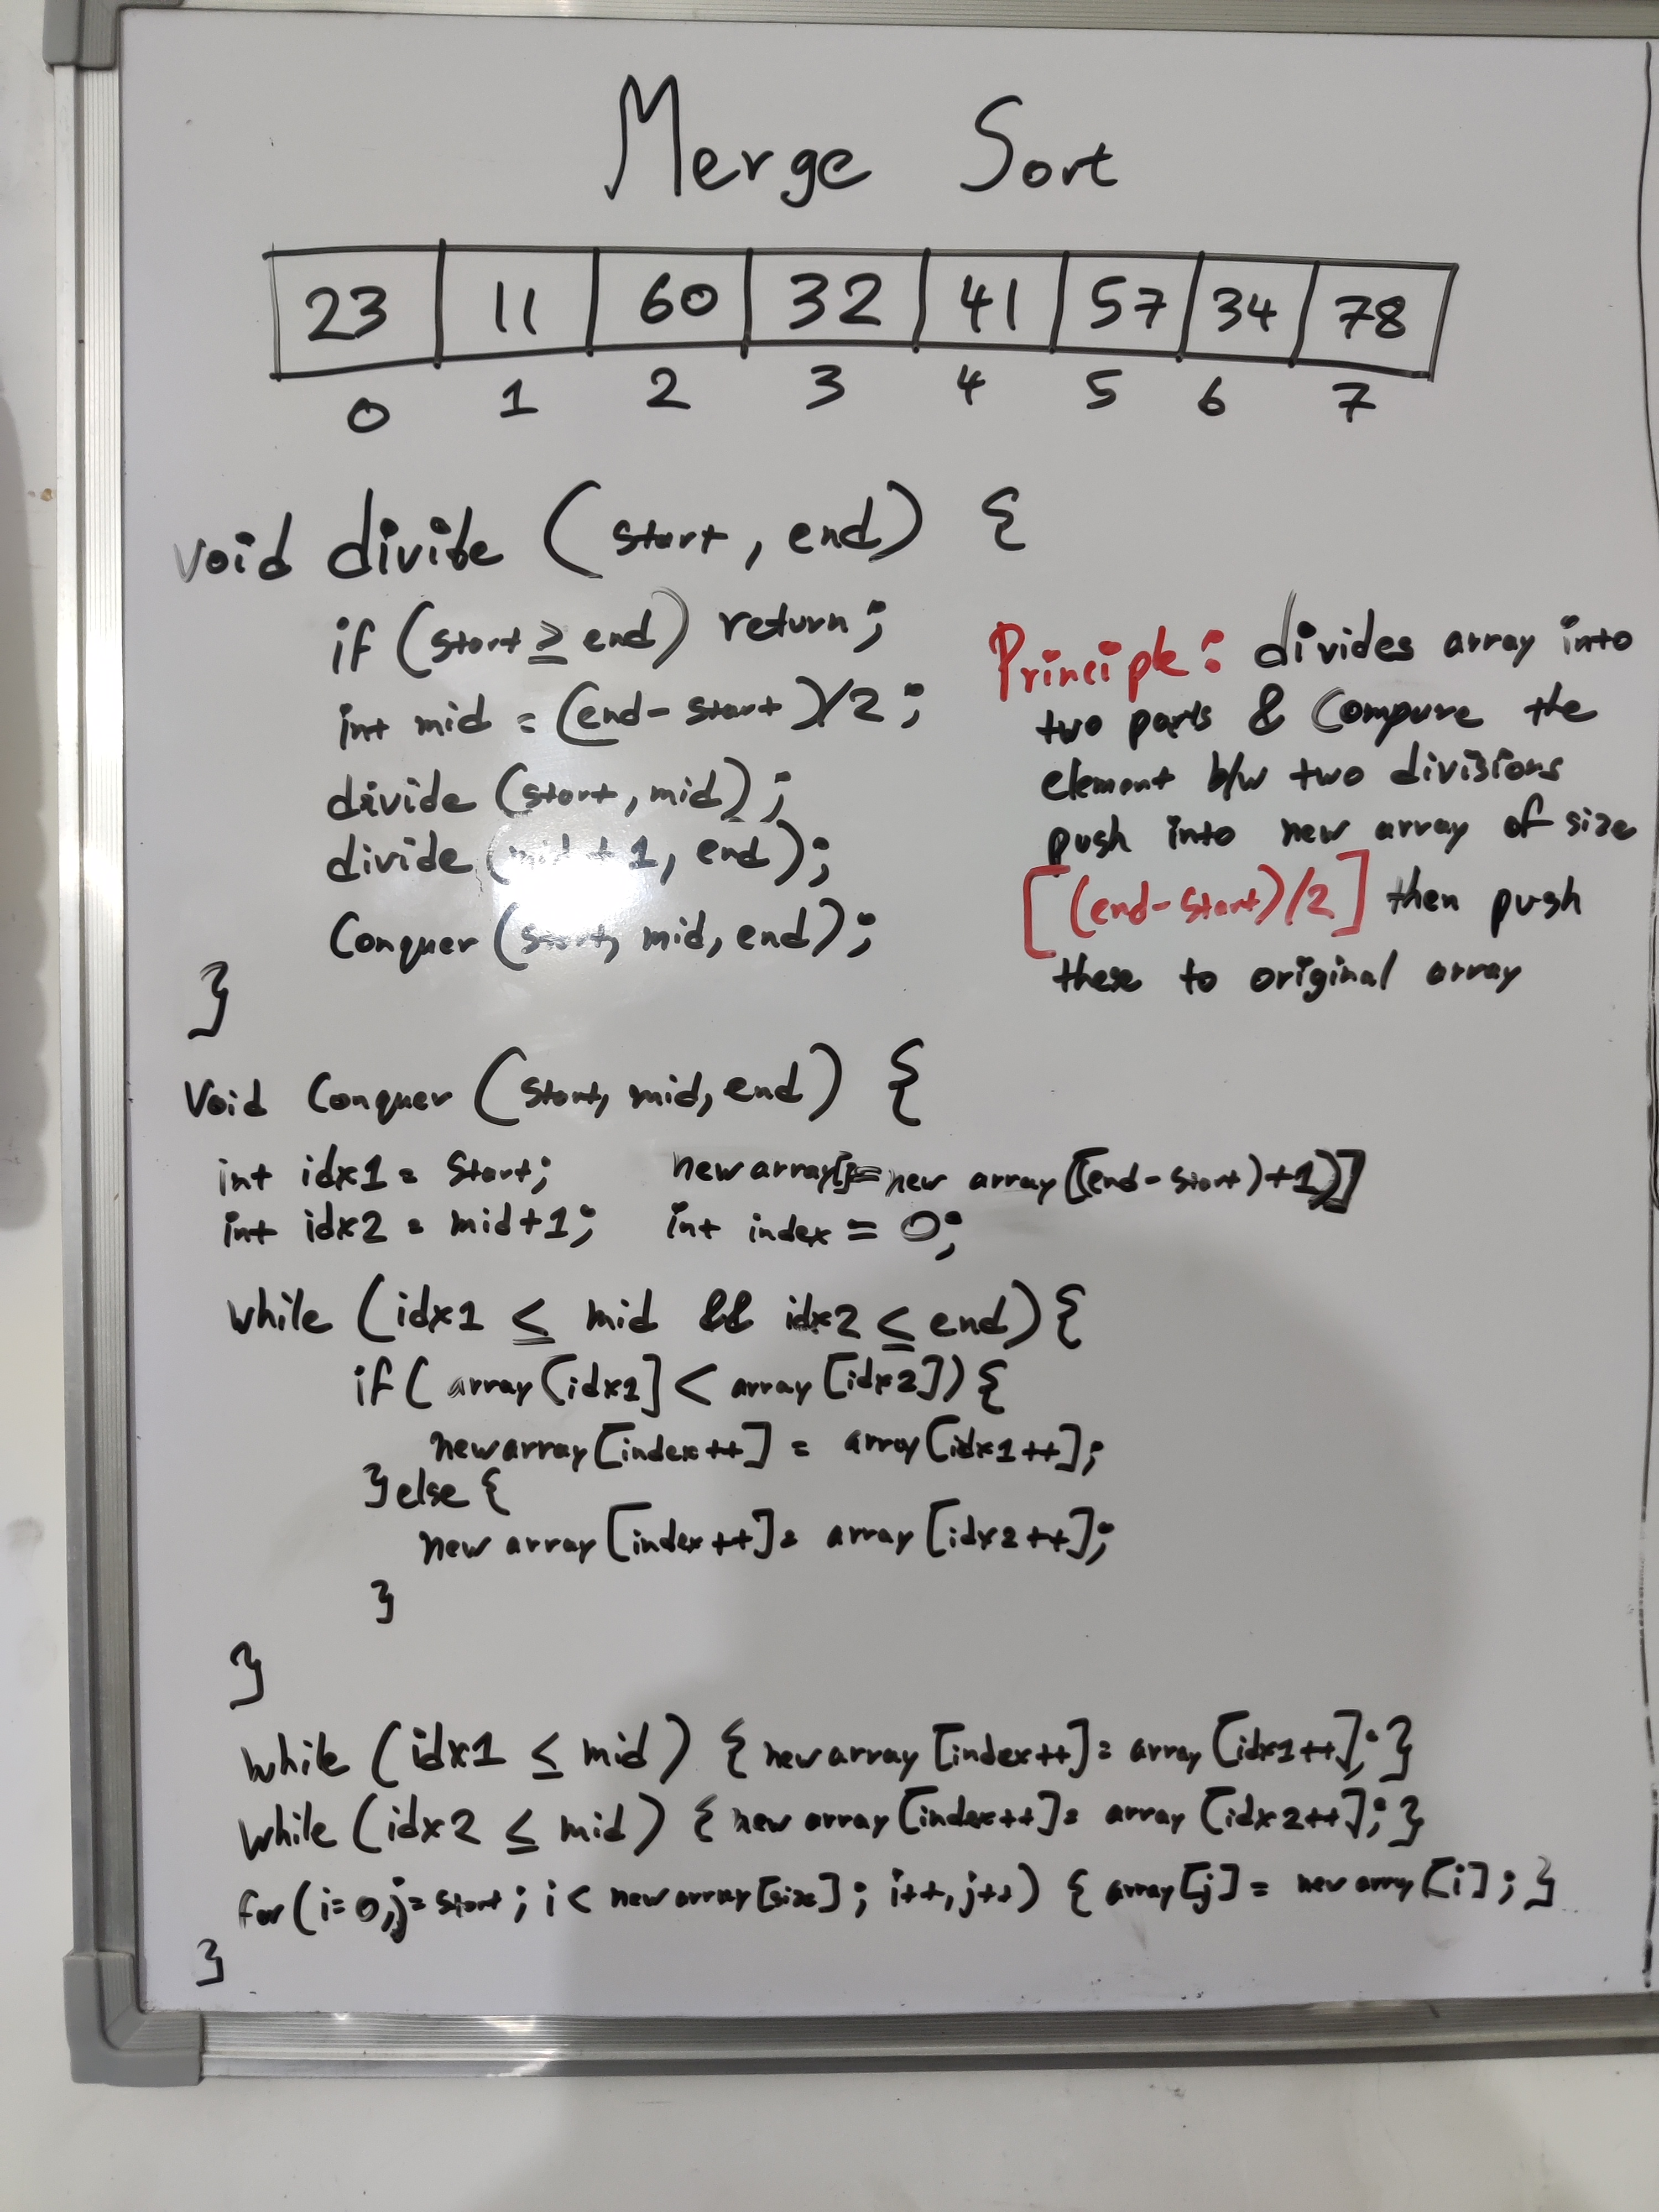 Merge Sort
23 11 60 32 41 57 34 78
0 1 2 3 4 5 6 7
void divide (start, end) {
if (start ≥ end) return;
int mid = (end - start)/2;
divide (start, mid);
divide (mid + 1, end);
Conquer (start, mid, end);
}
Principle: divides array into
two parts & Compare the
element b/w two divisions
push into new array of size
[(end-start)/2] then push
these to original array
Void Conquer (start, mid, end) {
int idx1 = start; newarray[]= new array[(end-start)+1)]
int idx2 = mid+1; int index = 0;
while (idx1 ≤ mid && idx2 ≤ end) {
if (array[idx1] < array[idx2]) {
newarray[index++] = array[idx1++];
} else {
new array[index++] = array[idx2++];
}
}
while (idx1 ≤ mid) { newarray[index++] = array[idx1++]; }
while (idx2 ≤ mid) { new array[index++] = array[idx2++]; }
for (i=0,j=start; i < newarray[size]; i++, j++) { array[j] = new array[i]; }
}